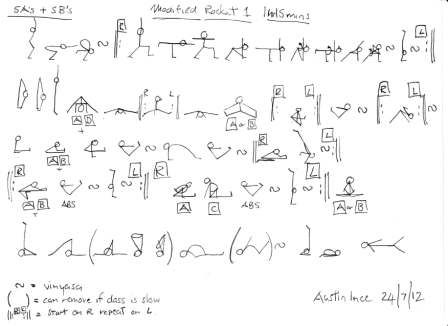 SA's + SB's Modified Rocket 1 1hr15mins
R L
R L R L R L
A B A or B
R L
A B
R L R L
A B ABS A C ABS A or B
~ = vinyasa
( ) = can remove if class is slow
R L = start on R repeat on L.
Austin Ince 24/7/12